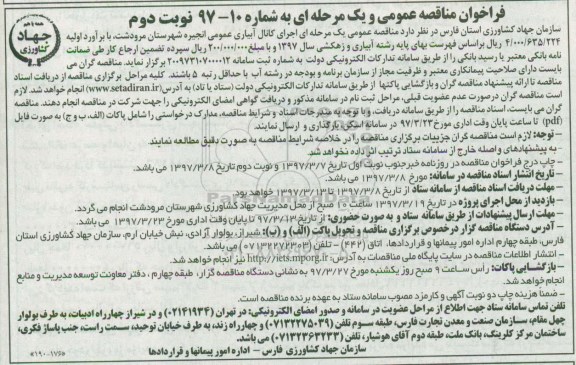 فراخوان مناقصه عمومی و یک مرحله ای به شماره ۱۰-۹۷ نوبت دوم
جهاد کشاورزی
سازمان جهاد کشاورزی استان فارس در نظر دارد مناقصه عمومی یک مرحله ای اجرای کانال آبیاری عمومی انجیره شهرستان مرودشت، با برآورد اولیه
۴/۰۰۰/۶۳۵/۲۲۴ ریال براساس فهرست بهای پایه رشته آبیاری و زهکشی سال ۱۳۹۷ و با مبلغ ۲۰۰/۰۰۰/۰۰۰ ریال سپرده تضمین ارجاع کار طی ضمانت
نامه بانکی معتبر یا رسید بانکی را از طریق سامانه تدارکات الکترونیکی دولت به شماره ثبت سامانه ۲۰۰۹۷۳۱۰۷۰۰۰۰۱۲ برگزار نماید. مناقصه گران می
بایست دارای صلاحیت پیمانکاری معتبر و ظرفیت مجاز از سازمان برنامه و بودجه در رشته آب با حداقل رتبه ۵ باشند. کلیه مراحل برگزاری مناقصه از دریافت اسناد
مناقصه تا ارائه پیشنهاد مناقصه گران و بازگشایی پاکتها از طریق سامانه تدارکات الکترونیکی دولت (ستاد یا تاد) به آدرس (www.setadiran.ir) انجام خواهد شد. لازم
است مناقصه گران درصورت عدم عضویت قبلی، مراحل ثبت نام در سامانه مذکور و دریافت گواهی امضای الکترونیکی را جهت شرکت در مناقصه انجام دهند. مناقصه
گران می بایست، اسناد مناقصه را از طریق سامانه دریافت، و با توجه به مندرجات اسناد و شرایط مناقصه، مدارک درخواستی را شامل پاکات (الف، ب و ج) به صورت فایل
(pdf) تا ساعت پایان وقت اداری مورخ ۹۷/۳/۲۳ در سامانه اسکن، بارگذاری و ارسال نمایند.
- توجه: لازم است مناقصه گران جزییات برگزاری مناقصه را در خلاصه شرایط مناقصه به صورت دقیق مطالعه نمایند
- به پیشنهادهای واصله خارج از سامانه ستاد ترتیب اثر داده نخواهد شد
- چاپ درج فراخوان مناقصه در روزنامه خبرجنوب نوبت اول تاریخ ۱۳۹۷/۳/۷ و نوبت دوم تاریخ ۱۳۹۷/۳/۸ می باشد.
- تاریخ انتشار اسناد مناقصه در سامانه: مورخ ۱۳۹۷/۳/۸ می باشد.
- مهلت دریافت اسناد مناقصه از سامانه ستاد از تاریخ ۱۳۹۷/۳/۸ تا ۱۳۹۷/۳/۱۳ خواهد بود.
- بازدید از محل اجرای پروژه در تاریخ ۱۳۹۷/۳/۱۹ ساعت ۱۰ صبح از محل مدیریت جهاد کشاورزی شهرستان مرودشت انجام می گردد.
- مهلت ارسال پیشنهادات از طریق سامانه ستاد و به صورت حضوری: از تاریخ ۹۷/۳/۱۳ تا پایان وقت اداری مورخ ۱۳۹۷/۳/۲۳ می باشد.
- آدرس دستگاه مناقصه گزار در خصوص برگزاری مناقصه و تحویل پاکت (الف) و (ب): شیراز، بولوار آزادی، نبش خیابان ارم، سازمان جهاد کشاورزی استان
فارس، طبقه چهارم اداره امور پیمانها و قراردادها، اتاق (۴۴۲) - تلفن (۰۷۱۳۲۲۷۲۳۰۳) می باشد.
- انتشار اطلاعات مناقصه در سایت پایگاه ملی مناقصات به آدرس: http://iets.mporg.ir نیز انجام خواهد شد.
- بازگشایی پاکات: راس ساعت ۹ صبح روز یکشنبه مورخ ۹۷/۳/۲۷ به نشانی دستگاه مناقصه گزار، طبقه چهارم، دفتر معاونت توسعه مدیریت و منابع
انجام خواهد شد.
- ضمنا هزینه چاپ دو نوبت آگهی و کارمزد مصوب سامانه ستاد به عهده برنده مناقصه است.
تلفن تماس سامانه ستاد جهت اطلاع از مراحل عضویت در سامانه و صدور امضای الکترونیکی: در تهران (۰۲۱۴۱۹۳۴) و در شیراز چهارراه ادبیات، به طرف بولوار
چهل مقام، سازمان صنعت و معدن تجارت فارس، طبقه سوم تلفن (۰۷۱۳۲۲۷۵۰۳۹) و چهارراه زند، به طرف خیابان توحید، سمت راست، جنب پاساژ فکری،
ساختمان مرکز کلینیک، بانک ملت، طبقه دوم آقای هوشیار، تلفن (۰۷۱۳۲۳۶۳۲۳۳) می باشد.
سازمان جهاد کشاورزی فارس - اداره امور پیمانها و قراردادها
«۱۹۰۰۱۷۶»